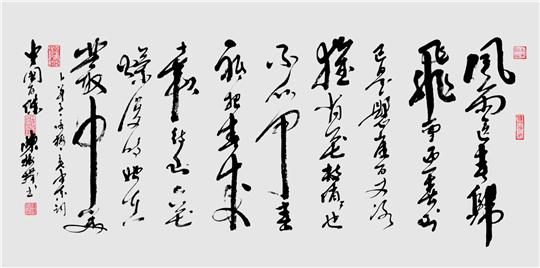 風雨送春歸
飛雪迎春到
已是懸崖百丈冰
猶有花枝俏俏也
不爭春
祇把春来
報待到山花
爛漫時她在
叢中笑
卜算子咏梅